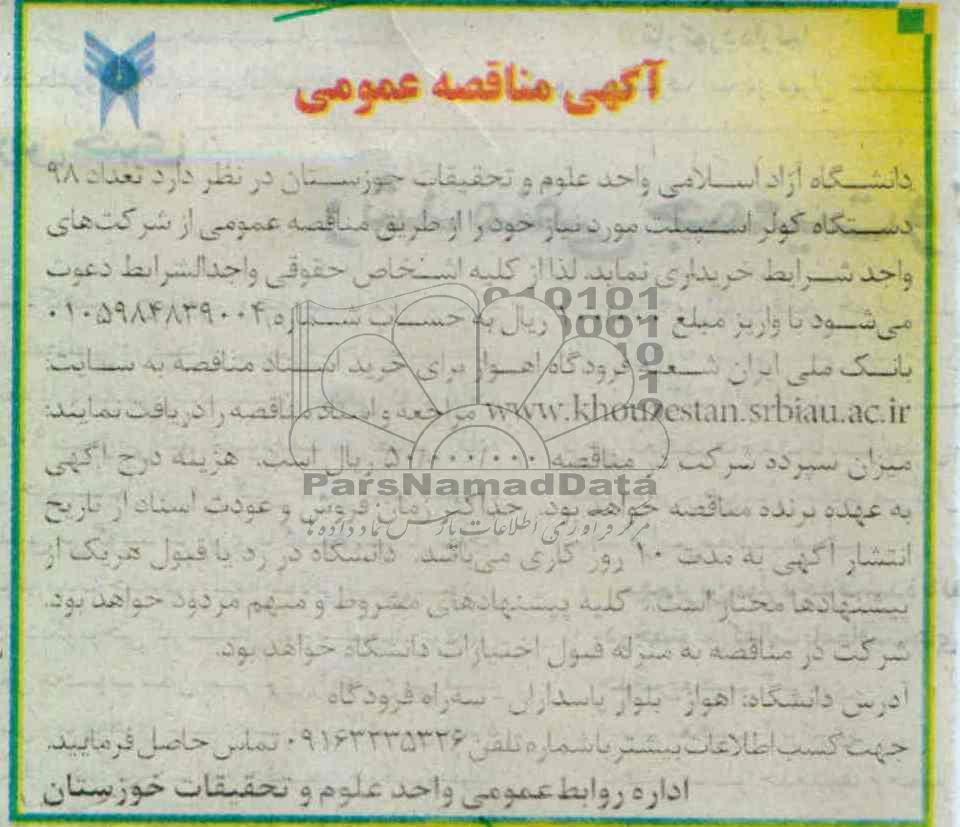 آگهی مناقصه عمومی
دانشگاه آزاد اسلامی واحد علوم و تحقیقات خوزستان در نظر دارد تعداد ۹۸
دستگاه کولر اسپیلت مورد نیاز خود را از طریق مناقصه عمومی از شرکت‌های
واجد شرایط خریداری نماید. لذا از کلیه اشخاص حقوقی واجدالشرایط دعوت
می‌شود با واریز مبلغ ریال به حساب شماره ۰۱۰۵۹۸۴۸۳۹۰۰۴
بانک ملی ایران شعبه فرودگاه اهواز برای خرید اسناد مناقصه به سایت:
www.khouzestan.srbiau.ac.ir مراجعه و اسناد مناقصه را دریافت نمایند:
میزان سپرده شرکت در مناقصه ۵۰/۰۰۰/۰۰۰ ریال است. هزینه درج آگهی
به عهده برنده مناقصه خواهد بود. حداکثر زمان فروش و عودت اسناد از تاریخ
انتشار آگهی به مدت ۱۰ روز کاری می‌باشد. دانشگاه در رد یا قبول هریک از
پیشنهادها مختار است. کلیه پیشنهادهای مشروط و مبهم مردود خواهد بود.
شرکت در مناقصه به منزله قبول اختیارات دانشگاه خواهد بود.
آدرس دانشگاه: اهواز- بلوار پاسداران- سه‌راه فرودگاه
جهت کسب اطلاعات بیشتر با شماره تلفن ۰۹۱۶۳۲۳۵۳۲۶ تماس حاصل فرمایید.
اداره روابط عمومی واحد علوم و تحقیقات خوزستان
ParsNamadData
مرکز فرآوری اطلاعات پارس نماد داده ها